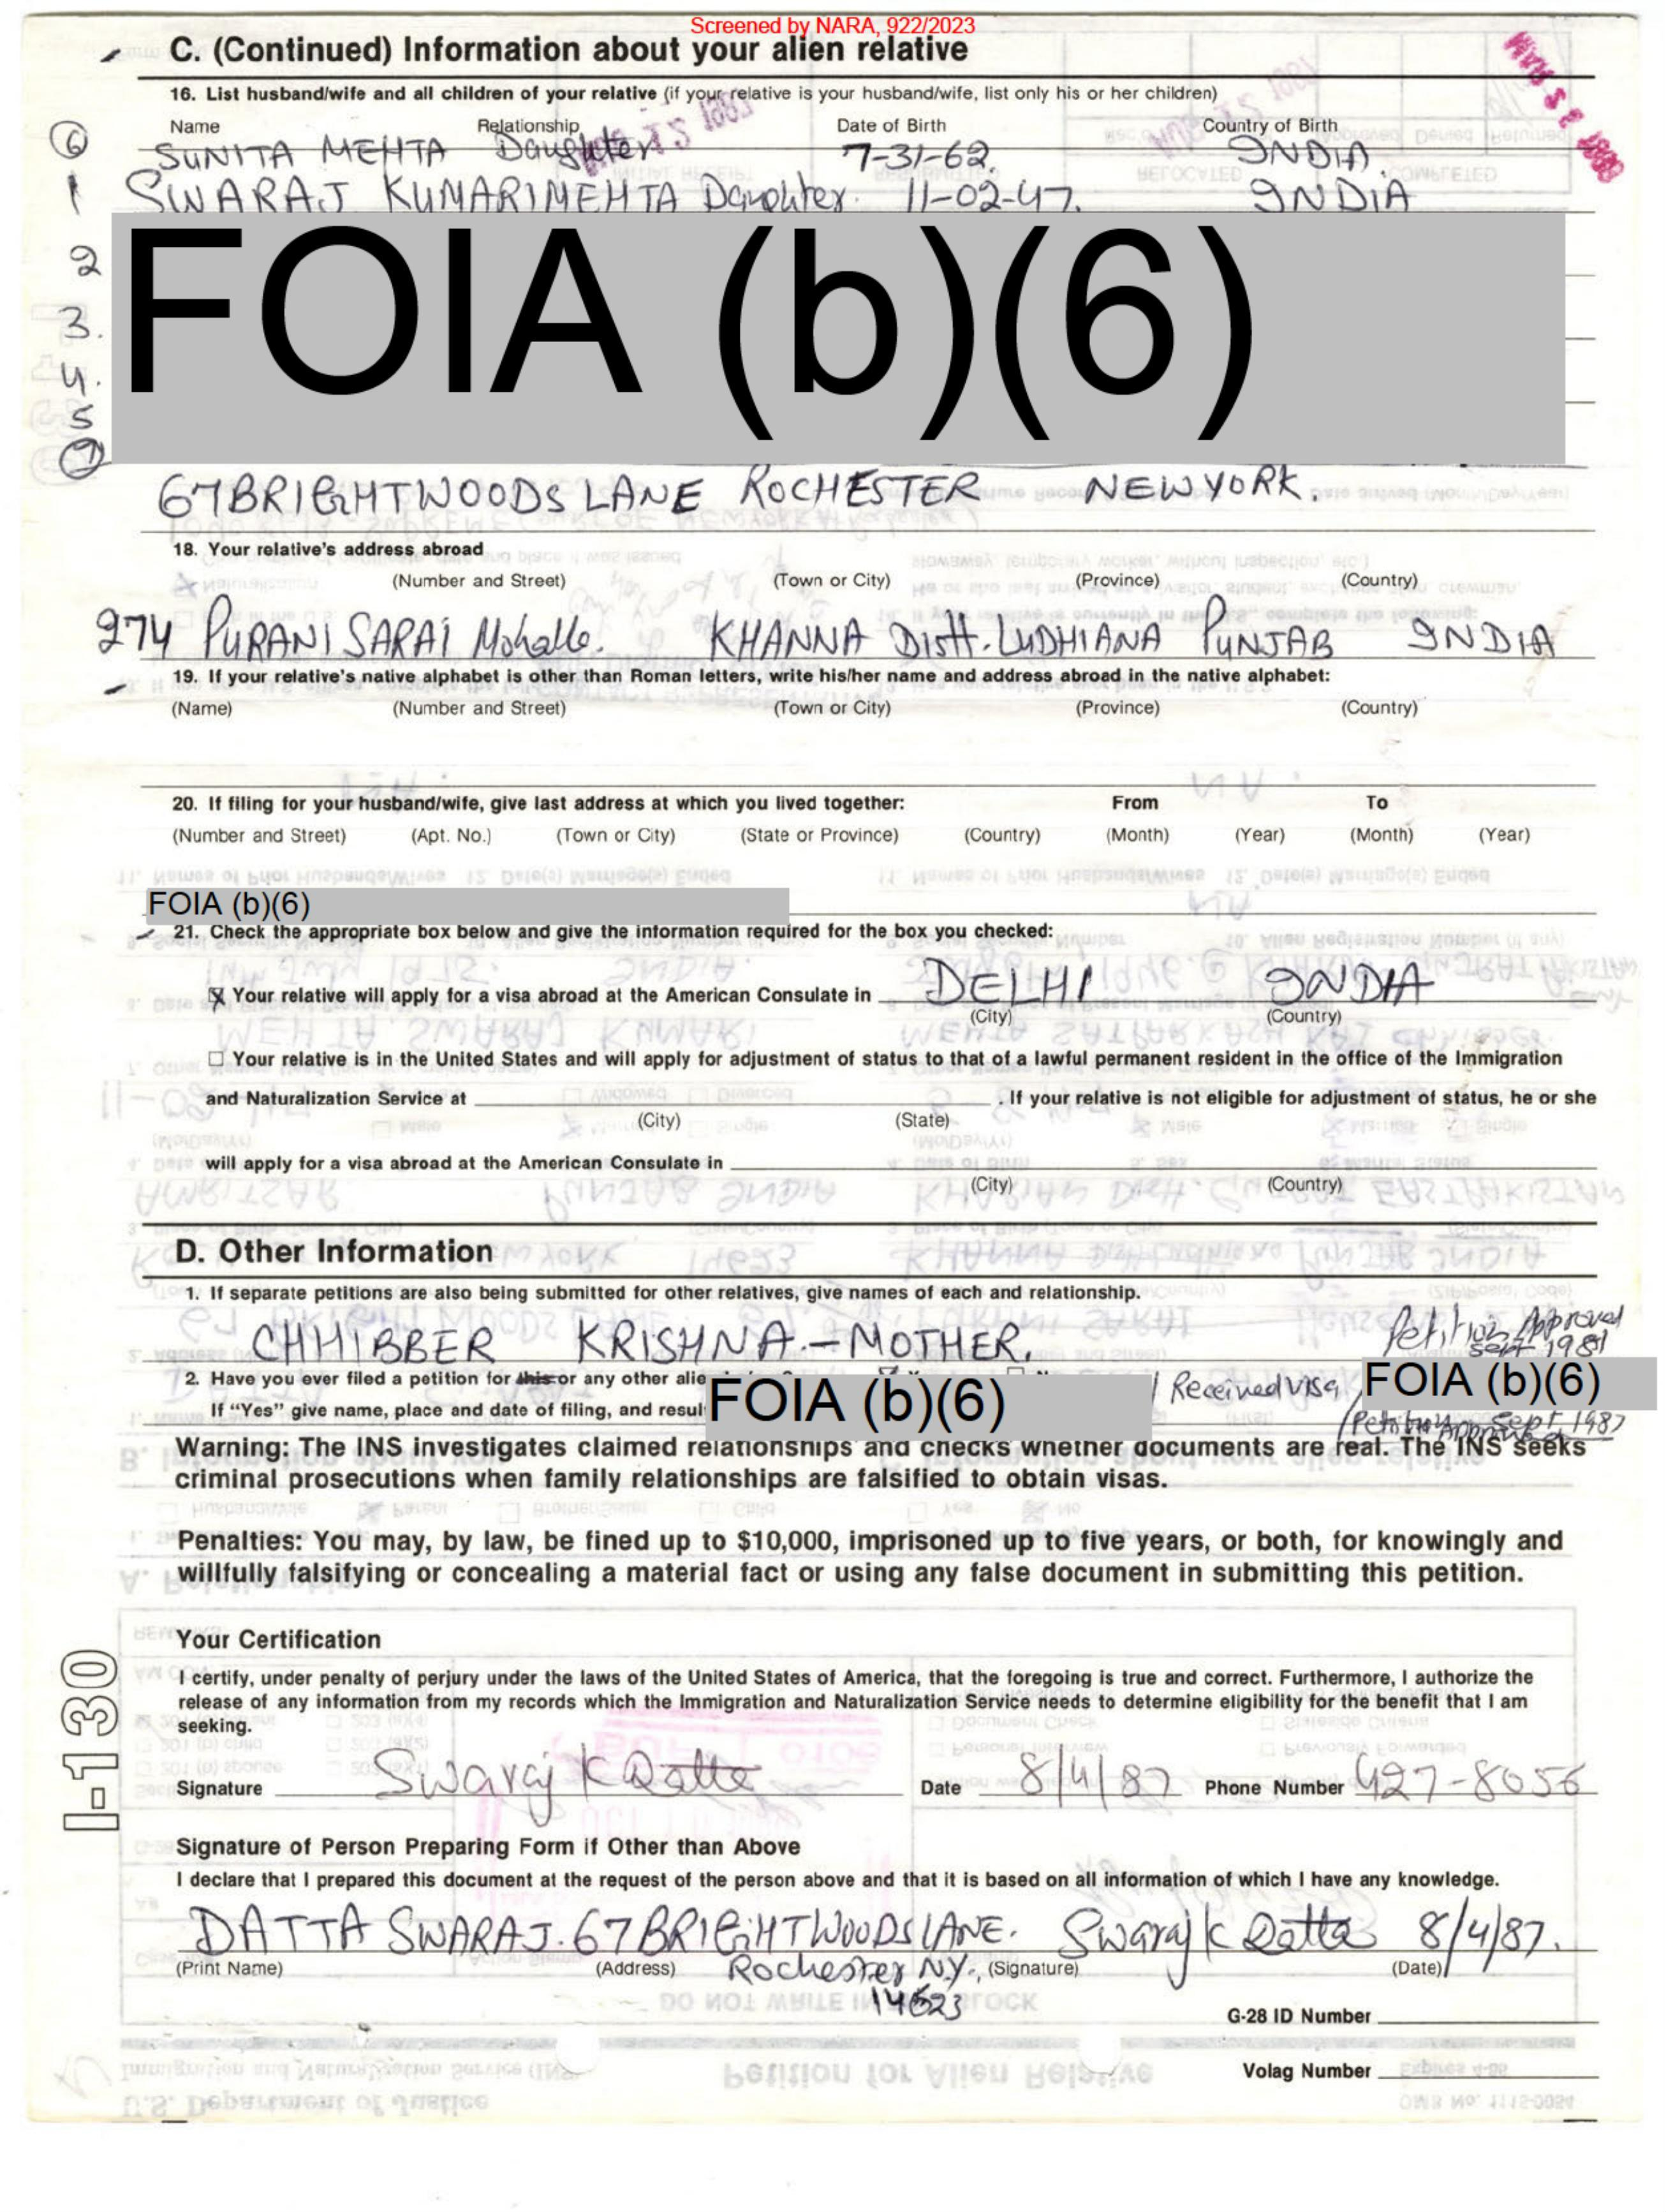 Screened by NARA, 922/2023
C. (Continued) Information about your alien relative
16. List husband/wife and all children of your relative (if your relative is your husband/wife, list only his or her children)
Name Relationship Date of Birth Country of Birth
6 SUNITA MEHTA Daughter 7-31-62. INDIA.
1 SWARAJ KUMARI MEHTA Daughter. 11-02-47. INDIA
FOIA (b)(6)
2
3.
4.
5
7
67 BRIGHTWOODS LANE ROCHESTER NEWYORK.
18. Your relative's address abroad
(Number and Street) (Town or City) (Province) (Country)
274 PURANI SARAI Mohalle. KHANNA Distt. LUDHIANA PUNJAB INDIA
19. If your relative's native alphabet is other than Roman letters, write his/her name and address abroad in the native alphabet:
(Name) (Number and Street) (Town or City) (Province) (Country)
20. If filing for your husband/wife, give last address at which you lived together: From To
(Number and Street) (Apt. No.) (Town or City) (State or Province) (Country) (Month) (Year) (Month) (Year)
FOIA (b)(6)
21. Check the appropriate box below and give the information required for the box you checked:
☒ Your relative will apply for a visa abroad at the American Consulate in DELHI INDIA
(City) (Country)
☐ Your relative is in the United States and will apply for adjustment of status to that of a lawful permanent resident in the office of the Immigration
and Naturalization Service at . If your relative is not eligible for adjustment of status, he or she
(City) (State)
will apply for a visa abroad at the American Consulate in
(City) (Country)
D. Other Information
1. If separate petitions are also being submitted for other relatives, give names of each and relationship.
CHHIBBER KRISHNA - MOTHER. Petition Approved
Sept 1981
2. Have you ever filed a petition for this or any other alie
FOIA (b)(6) Received visa FOIA (b)(6)
If "Yes" give name, place and date of filing, and resul
Petition Approved Sept 1987
Warning: The INS investigates claimed relationships and checks whether documents are real. The INS seeks
criminal prosecutions when family relationships are falsified to obtain visas.
Penalties: You may, by law, be fined up to $10,000, imprisoned up to five years, or both, for knowingly and
willfully falsifying or concealing a material fact or using any false document in submitting this petition.
Your Certification
I certify, under penalty of perjury under the laws of the United States of America, that the foregoing is true and correct. Furthermore, I authorize the
release of any information from my records which the Immigration and Naturalization Service needs to determine eligibility for the benefit that I am
seeking.
Signature Swaraj K Datta Date 8/4/87 Phone Number 427-8056
Signature of Person Preparing Form if Other than Above
I declare that I prepared this document at the request of the person above and that it is based on all information of which I have any knowledge.
DATTA SWARAJ. 67 BRIGHTWOODS LANE. Swaraj K Datta 8/4/87.
(Print Name) (Address) Rochester N.Y., (Signature) (Date)
14623
G-28 ID Number
Volag Number
I-130